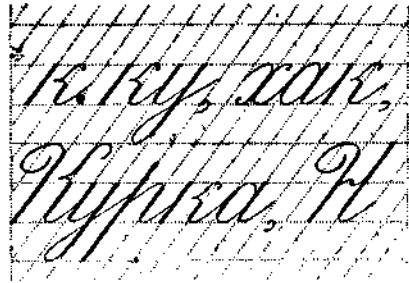 к. ку, хак,
Курка, К